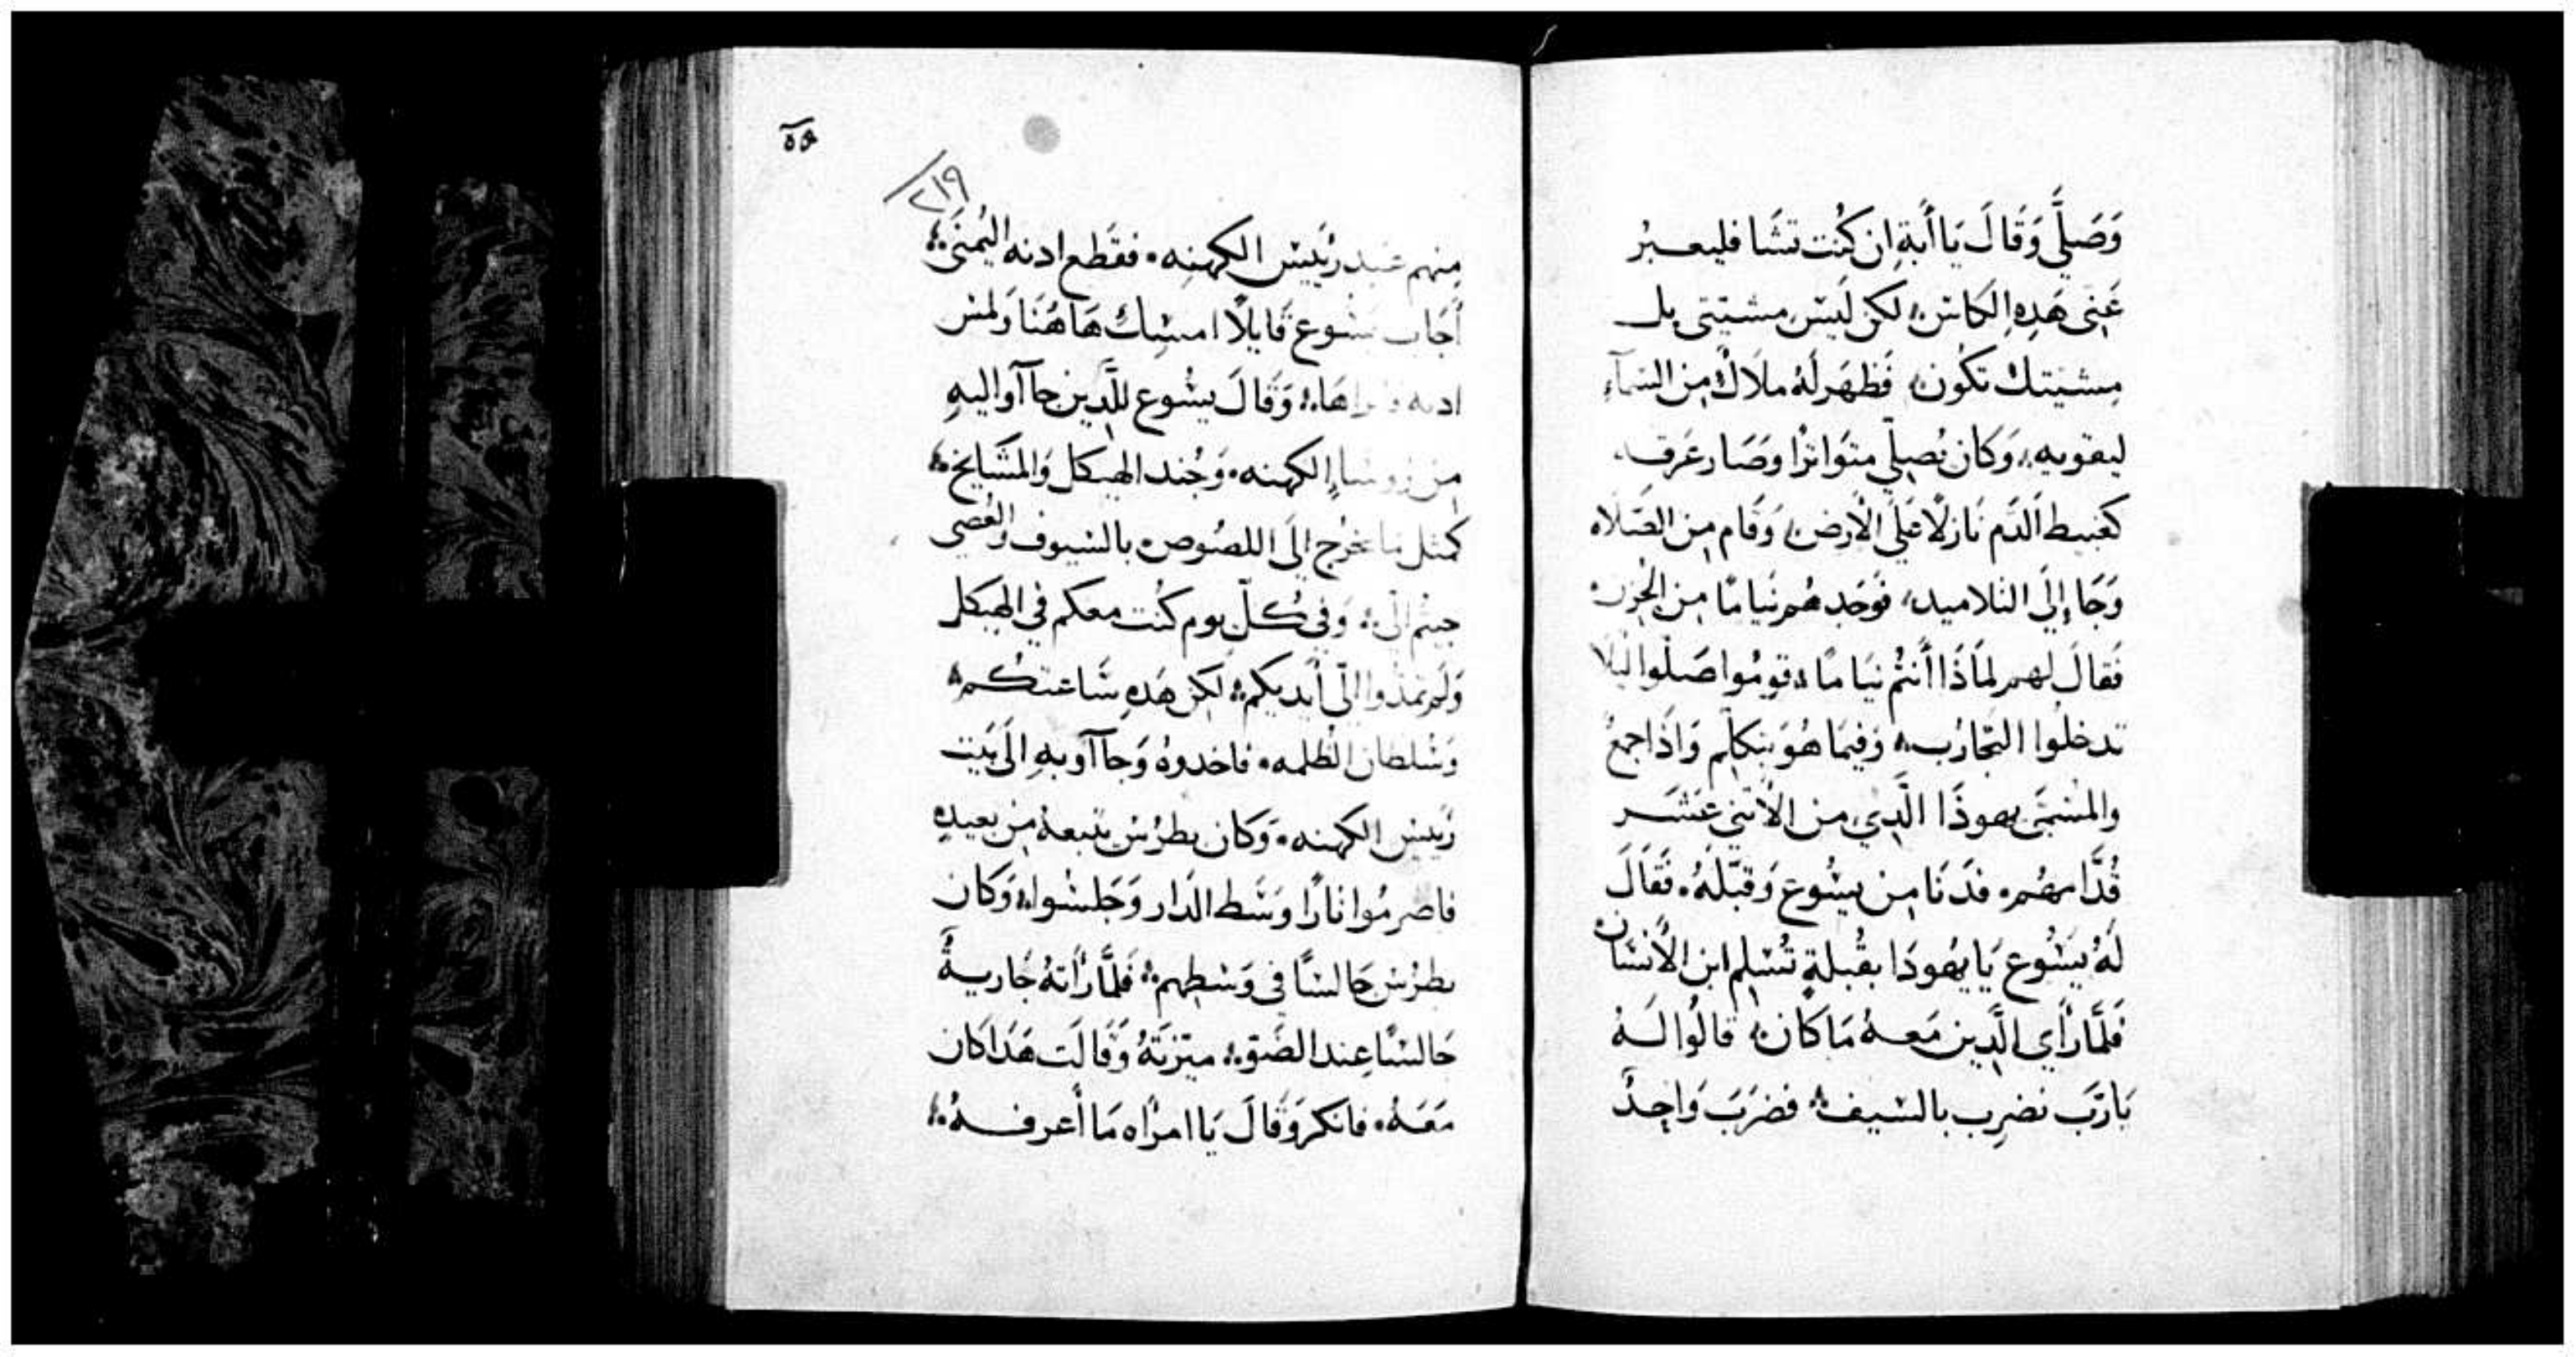 وَصَلَّي وَقَالَ يَا أَبَةِ ان كُنت تشَا فليعبرُ
عَنِى هَدِهِ الكَاس؛ لكن لَيسَ مشيتى بل
مشيتك تكُون؛ فَظهَر لَهُ ملَاكٌ مِن السَمآءِ
ليقويه؛ وَكان يُصلي متوَاترًا وَصَار عَرقه
كعبيط الدَم نَازلًا عَلَى الأرض؛ وَقَام مِن الصَلاه
وَجَا إِلَى التلاميد؛ فوَجَدهُم نيَامًا مِن الحُزن؛
فَقالَ لهم لمَاذَا أنتُم نيَامًا؛ قومُوا صَلُوا ليَلا
تدخلُوا التجَارُب؛ وَفيمَا هُوَ يتكلم وَاذَا جمعُ
والمسَمَى يهوذَا الَّدِي من الأتني عَشَر
قُدَّامهُم؞ فدَنَا مِن يسُوع وَقبَّلهُ؞ فَقَالَ
لَهُ يسُوع يَا يهُودَا بقُبلةٍ تُسَلم ابن الأنسَان؞
فَلَمَّا رَأي الَّدِين مَعهُ مَا كَان؛ قالُوا لَهُ
يَا رَبَ نضرِب بالسَيف؛ فضرَبَ وَاحِدٌ
٥٥
٢١٩
مِنهم عَبد رَئيسَ الكهنه؞ فقَطع ادنه اليُمنَى؛
أجَاب يسُوع قَايلًا امسِك هَاهُنَا وَلمسَ
ادنه فابراهَا؛ وَقَالَ يسُوع للَّدِين جاآوا اليهِ
مِن روسَا الكهنه؞ وَجُند الهيكل وَالمشَايخ؛
كمثل مَا يخرُج إلَى اللصُوص بالسَيوف والعُصي
جيتم الَيّ؛ وَفي كُلّ يوم كنُت معكم في الهيكل
وَلَم تمدُوا الَيّ أيديكم؛ لكن هَدهِ سَاعتكُم؛
وَسُلطان الظلمه؞ فاخدوهُ وَجاآوا بهِ الَى بَيت
رَييسَ الكهنه؞ وَكان بطرُس يتبعهُ مِن بعيدٍ
فاصرمُوا نَارًا وَسَط الدَار وَجَلسُوا؛ وَكان
بطرُس جَالسًا في وَسَطهم؛ فَلمَّا رَأتهُ جَاريةُ
جَالسًا عِند الضَو؛ ميّزتَهُ وَقَالَت هَدَا كان
مَعَهُ؞ فانكر وَقَالَ يَا امرَاه مَا أعرفهُ؛